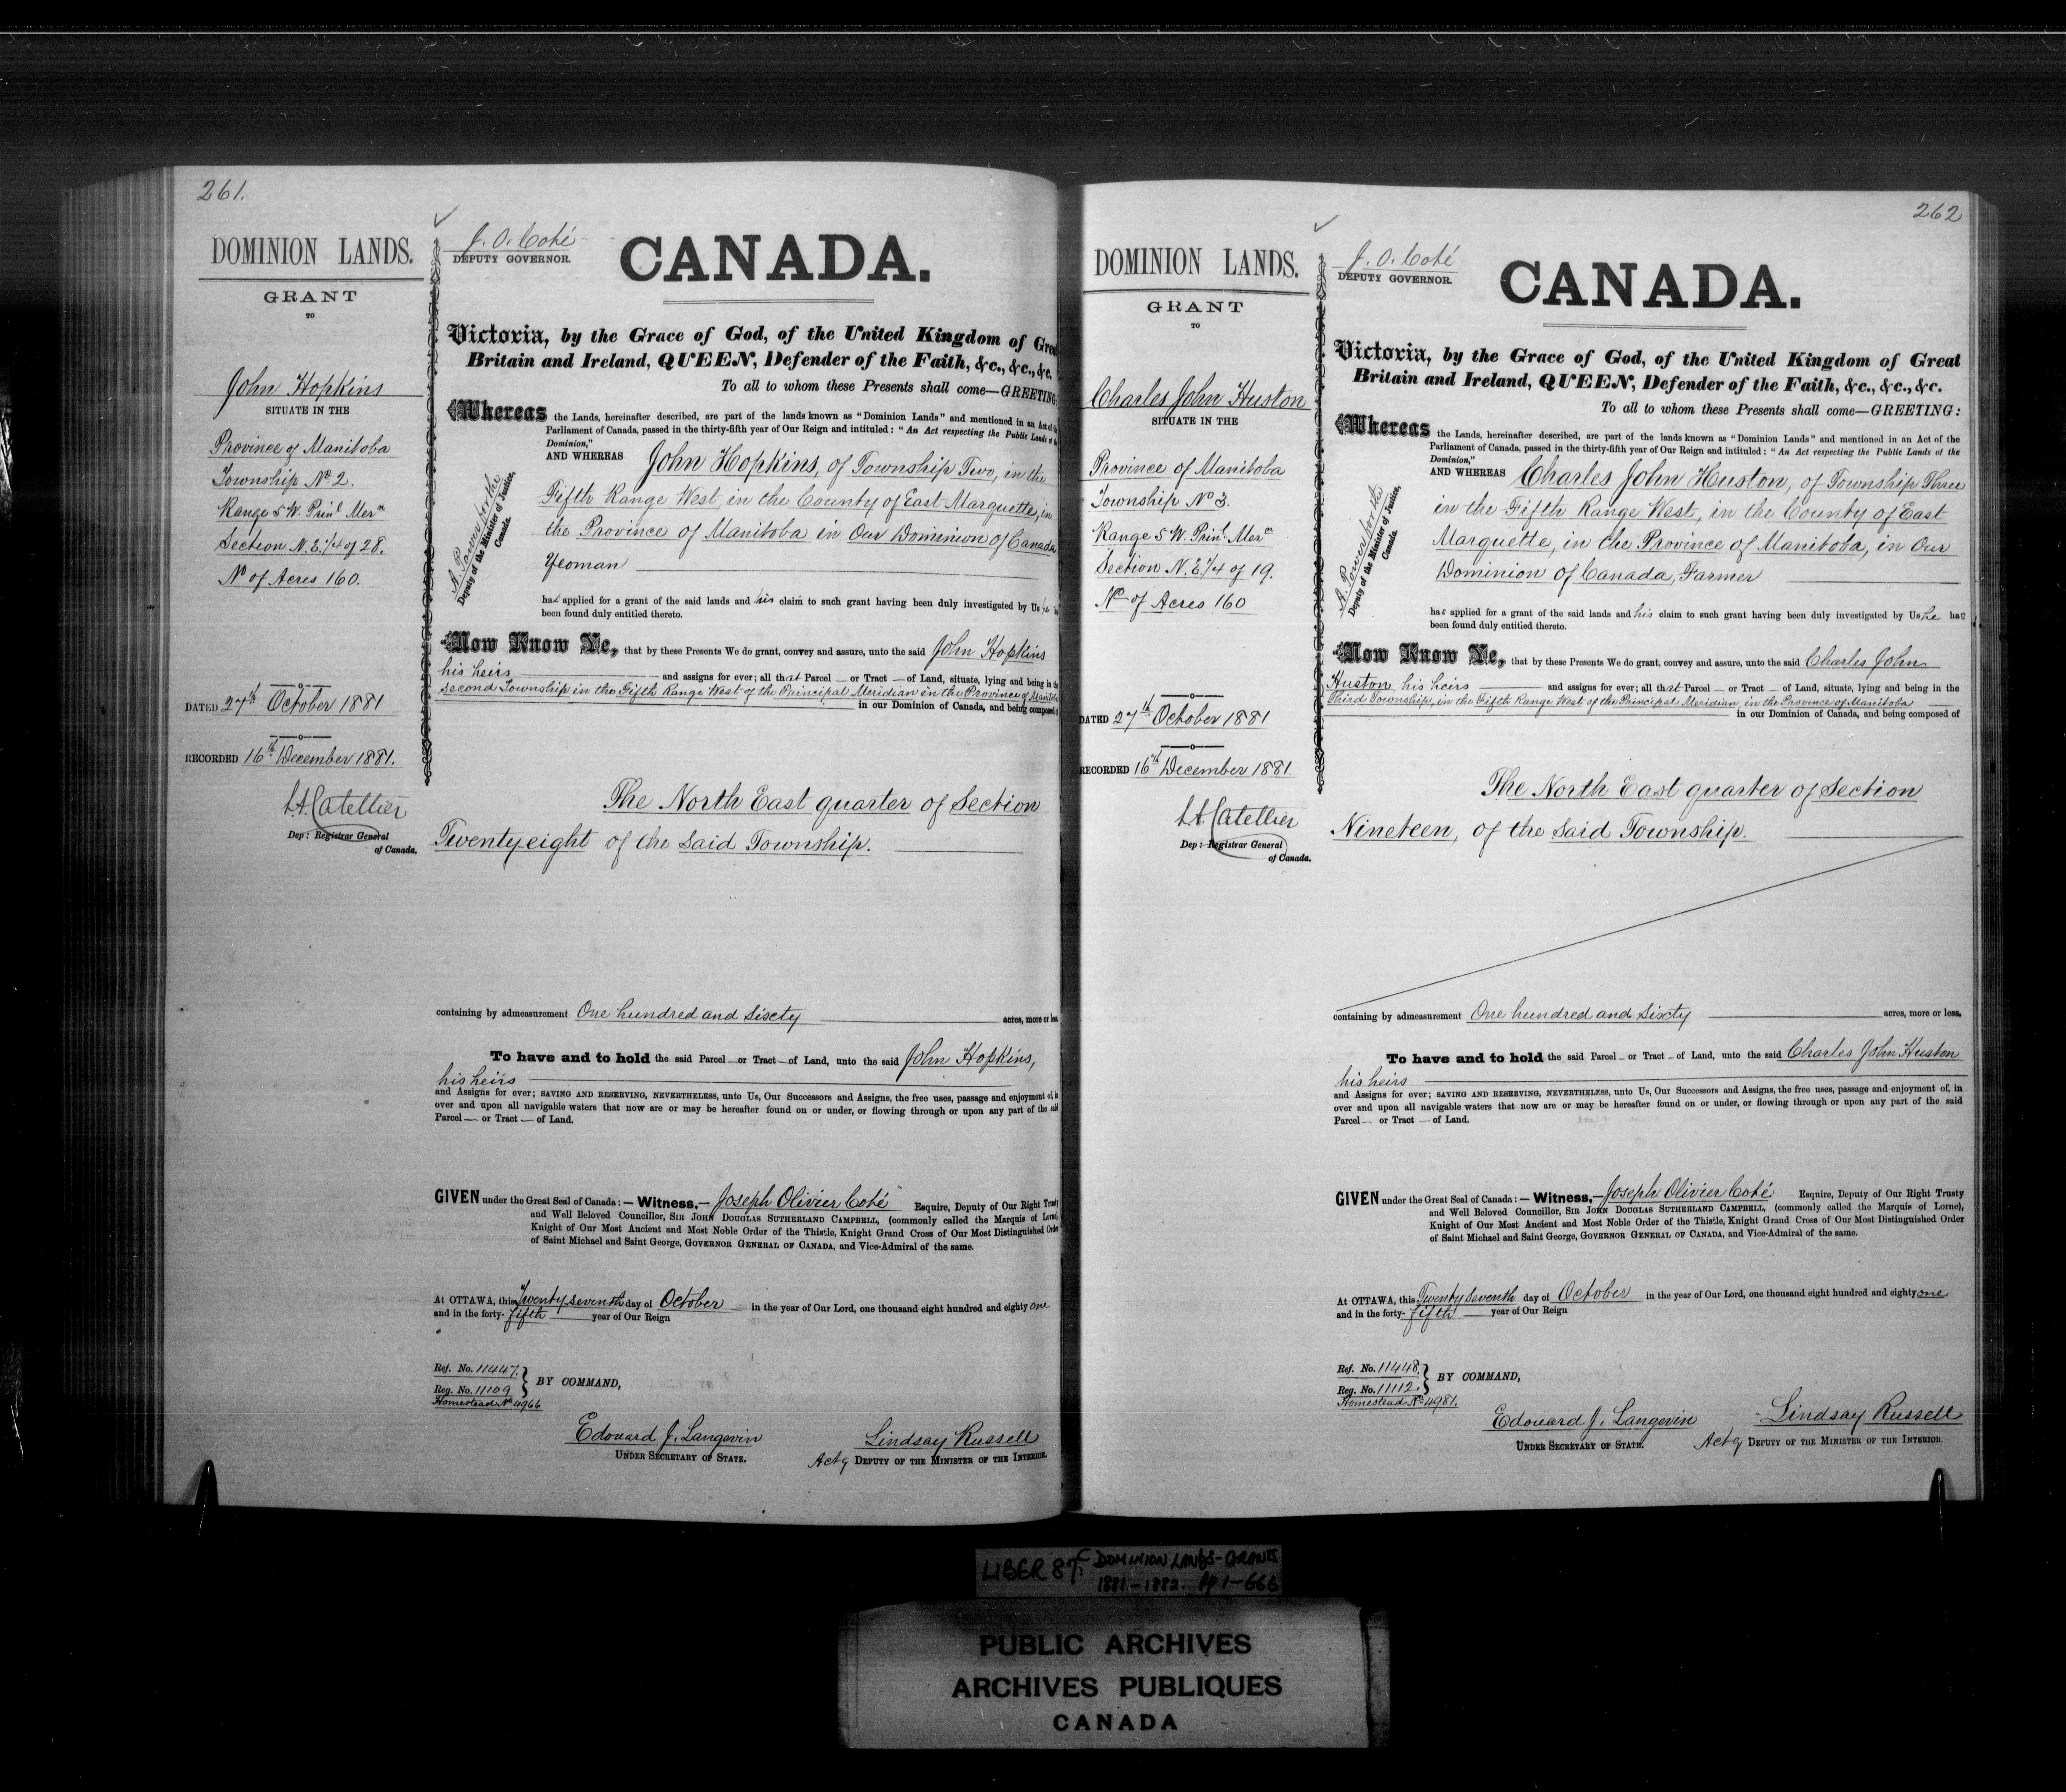 261.
DOMINION LANDS.
GRANT
TO
John Hopkins
SITUATE IN THE
Province of Manitoba
Township No. 2.
Range 5 W. Prinl. Mern
Section N.E. 1/4 of 28.
No of Acres 160.
DATED 27th October 1881
RECORDED 16th December 1881.
L.A. Catellier
Dep: Registrar General
of Canada.
J. O. Coté
DEPUTY GOVERNOR.
CANADA.
Victoria, by the Grace of God, of the United Kingdom of Great
Britain and Ireland, QUEEN, Defender of the Faith, &c., &c., &c.
To all to whom these Presents shall come—GREETING:
Whereas the Lands, hereinafter described, are part of the lands known as "Dominion Lands" and mentioned in an Act of the
Parliament of Canada, passed in the thirty-fifth year of Our Reign and intituled: "An Act respecting the Public Lands of the
Dominion,"
AND WHEREAS John Hopkins, of Township Two, in the
Fifth Range West, in the County of East Marquette, in
the Province of Manitoba in Our Dominion of Canada
Yeoman
A. Power for the
Deputy of the Minister of Justice,
Canada.
has applied for a grant of the said lands and his claim to such grant having been duly investigated by Us he has
been found duly entitled thereto.
Now Know Ye, that by these Presents We do grant, convey and assure, unto the said John Hopkins
his heirs — and assigns for ever; all that Parcel — or Tract — of Land, situate, lying and being in the
Second Township in the Fifth Range West of the Principal Meridian in the Province of Manitoba
in our Dominion of Canada, and being composed of
The North East quarter of Section
Twenty eight of the said Township.
containing by admeasurement One hundred and Sixty acres, more or less.
To have and to hold the said Parcel — or Tract — of Land, unto the said John Hopkins,
his heirs
and Assigns for ever; SAVING AND RESERVING, NEVERTHELESS, unto Us, Our Successors and Assigns, the free uses, passage and enjoyment of, in
over and upon all navigable waters that now are or may be hereafter found on or under, or flowing through or upon any part of the said
Parcel — or Tract — of Land.
GIVEN under the Great Seal of Canada: — Witness,— Joseph Olivier Coté Esquire, Deputy of Our Right Trusty
and Well Beloved Councillor, SIR JOHN DOUGLAS SUTHERLAND CAMPBELL, (commonly called the Marquis of Lorne),
Knight of Our Most Ancient and Most Noble Order of the Thistle, Knight Grand Cross of Our Most Distinguished Order
of Saint Michael and Saint George, GOVERNOR GENERAL OF CANADA, and Vice-Admiral of the same.
At OTTAWA, this Twenty seventh day of October in the year of Our Lord, one thousand eight hundred and eighty one
and in the forty-fifth year of Our Reign
Ref. No. 11447.
Reg. No. 11109 } BY COMMAND,
Homestead No 4966
Edouard J. Langevin
UNDER SECRETARY OF STATE.
Lindsay Russell
Actg DEPUTY OF THE MINISTER OF THE INTERIOR.
262
DOMINION LANDS.
GRANT
TO
Charles John Huston
SITUATE IN THE
Province of Manitoba
Township No 3.
Range 5 W. Prinl. Mern
Section N.E. 1/4 of 19.
No of Acres 160
DATED 27th October 1881
RECORDED 16th December 1881.
L.A. Catellier
Dep: Registrar General
of Canada.
J. O. Coté
DEPUTY GOVERNOR.
CANADA.
Victoria, by the Grace of God, of the United Kingdom of Great
Britain and Ireland, QUEEN, Defender of the Faith, &c., &c., &c.
To all to whom these Presents shall come—GREETING:
Whereas the Lands, hereinafter described, are part of the lands known as "Dominion Lands" and mentioned in an Act of the
Parliament of Canada, passed in the thirty-fifth year of Our Reign and intituled: "An Act respecting the Public Lands of the
Dominion,"
AND WHEREAS Charles John Huston, of Township Three
in the Fifth Range West, in the County of East
Marquette, in the Province of Manitoba, in Our
Dominion of Canada, Farmer
A. Power for the
Deputy of the Minister of Justice,
Canada.
has applied for a grant of the said lands and his claim to such grant having been duly investigated by Us he has
been found duly entitled thereto.
Now Know Ye, that by these Presents We do grant, convey and assure, unto the said Charles John
Huston his heirs — and assigns for ever; all that Parcel — or Tract — of Land, situate, lying and being in the
Third Township, in the Fifth Range West of the Principal Meridian, in the Province of Manitoba
in our Dominion of Canada, and being composed of
The North East quarter of Section
Nineteen, of the said Township.
containing by admeasurement One hundred and Sixty acres, more or less,
To have and to hold the said Parcel — or Tract — of Land, unto the said Charles John Huston
his heirs
and Assigns for ever; SAVING AND RESERVING, NEVERTHELESS, unto Us, Our Successors and Assigns, the free uses, passage and enjoyment of, in
over and upon all navigable waters that now are or may be hereafter found on or under, or flowing through or upon any part of the said
Parcel — or Tract — of Land.
GIVEN under the Great Seal of Canada: — Witness,— Joseph Olivier Coté Esquire, Deputy of Our Right Trusty
and Well Beloved Councillor, SIR JOHN DOUGLAS SUTHERLAND CAMPBELL, (commonly called the Marquis of Lorne),
Knight of Our Most Ancient and Most Noble Order of the Thistle, Knight Grand Cross of Our Most Distinguished Order
of Saint Michael and Saint George, GOVERNOR GENERAL OF CANADA, and Vice-Admiral of the same.
At OTTAWA, this Twenty seventh day of October in the year of Our Lord, one thousand eight hundred and eighty one
and in the forty-fifth year of Our Reign
Ref. No. 11448.
Reg. No. 11112. } BY COMMAND,
Homestead No 4981.
Edouard J. Langevin
UNDER SECRETARY OF STATE.
Lindsay Russell
Actg DEPUTY OF THE MINISTER OF THE INTERIOR.
LIBER 87C: DOMINION LANDS-GRANTS
1881-1882. Pp 1-666
PUBLIC ARCHIVES
ARCHIVES PUBLIQUES
CANADA